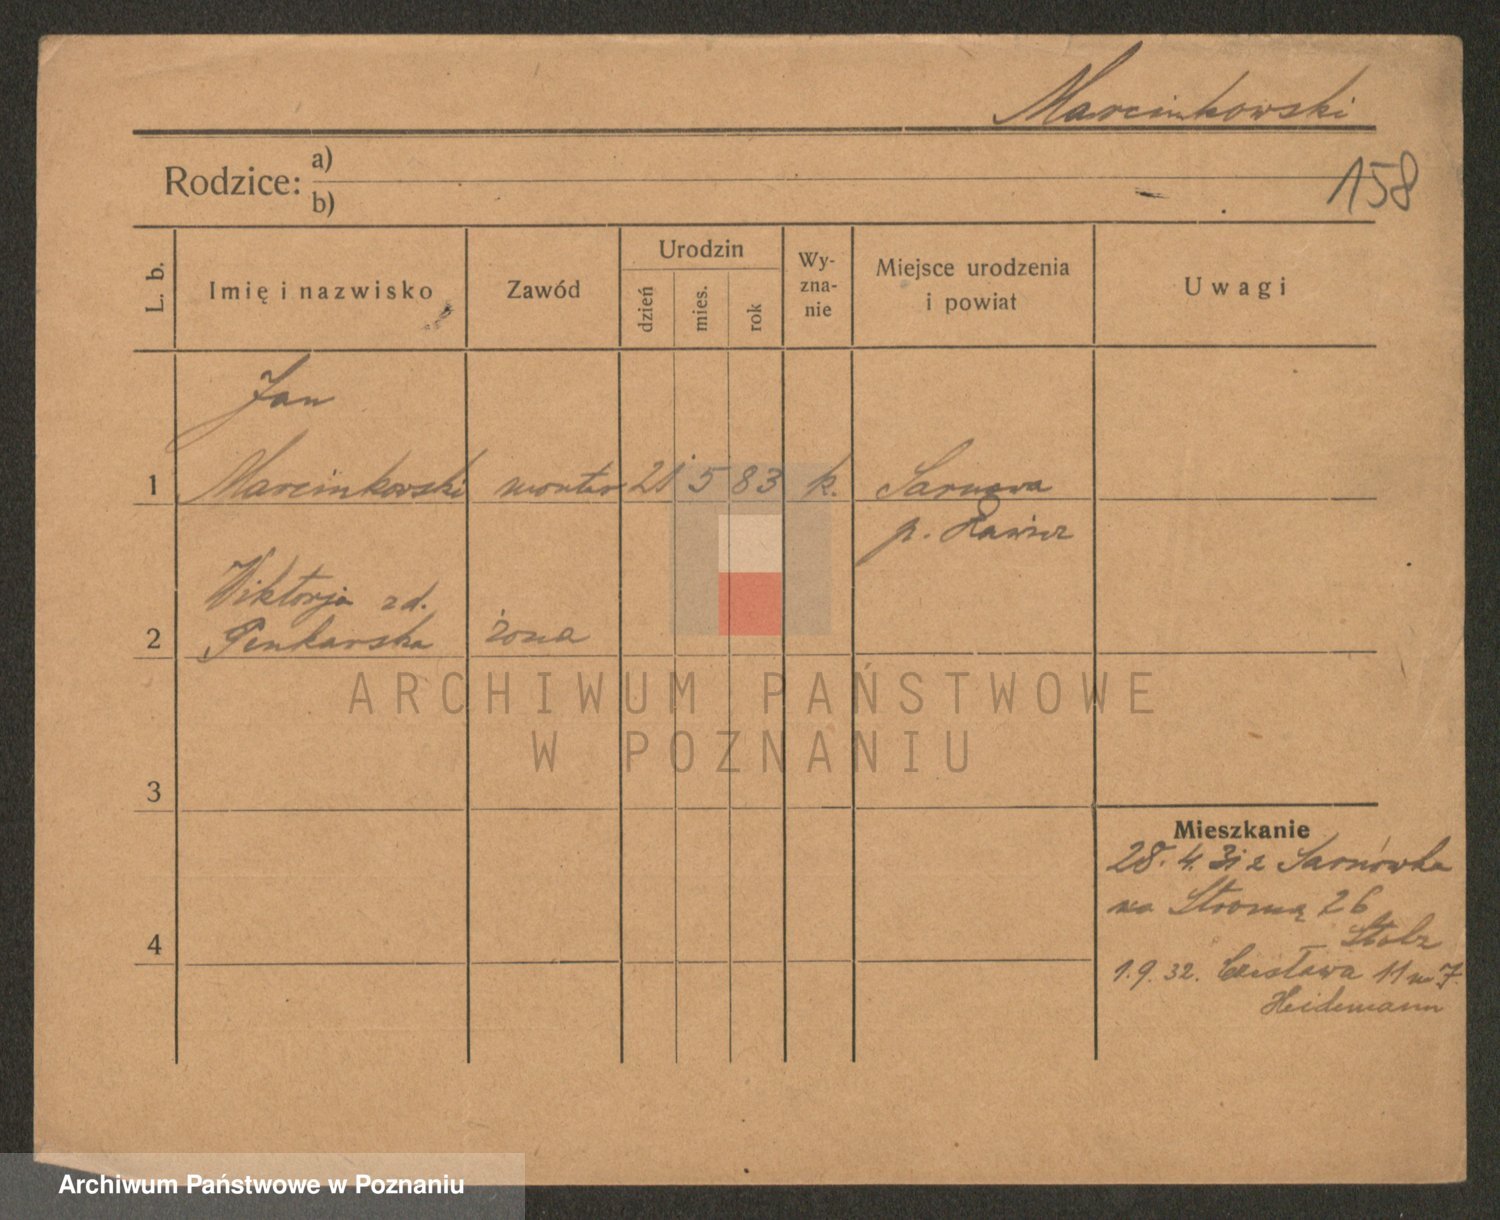 Marcinkowski
158
Rodzice:
a)
b)
L. b.
Imię i nazwisko
Zawód
Urodzin
dzień
mies.
rok
Wy-
zna-
nie
Miejsce urodzenia
i powiat
Uwagi
Jan
1 Marcinkowski monter 21 5 83 k. Sarnowa
p. Rawicz
Wiktorja zd.
2 Penkarska żona
3
4
Mieszkanie
28. 4. 31 z Sarnówka
na Stromą 26
Stolz
1.9.32. Czesława 11 m 7.
Heidemann
ARCHIWUM PAŃSTWOWE
W POZNANIU
Archiwum Państwowe w Poznaniu